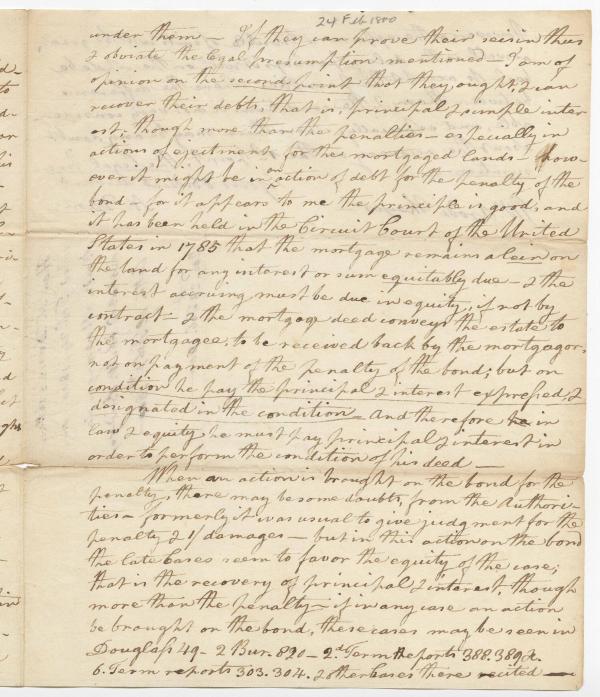 24 Feb 1800
under them — If they can prove their seisin thus
& obviate the legal presumption mentioned — I am of
opinion on the second point that they ought, & can
recover their debts, that is, principal & simple inter-
est, though more than the penalties — especially in
actions of ejectment for the mortgaged lands — how-
ever it might be in an action of debt for the penalty of the
bond — for it appears to me the principle is good, and
it has been held in the Circuit Court of the United
States in 1785 that the mortgage remains a lien on
the land for any interest or sum equitably due — & the
interest accruing must be due in equity, if not by
contract — & the mortgage deed conveys the estate to
the mortgagee, to be received back by the mortgagor,
not on payment of the penalty of the bond; but on
condition he pay the principal & interest expressed, &
designated in the condition — And therefore in
law & equity he must pay principal & interest in
order to perform the condition of his deed —
When an action is brought on the bond for the
penalty, there may be some doubts, from the authori-
ties — formerly it was usual to give judgment for the
penalty & 1/ damages — but in this action on the bond
the late Cases seem to favor the equity of the case;
that is the recovery of principal & interest, though
more than the penalty — if in any case an action
be braught on the bond, these cases may be seen in
Douglass 49 — 2 Bur. 820 — 2d Term Reports 388. 389 &c.
6. Term reports 303. 304. & other Cases there recited —